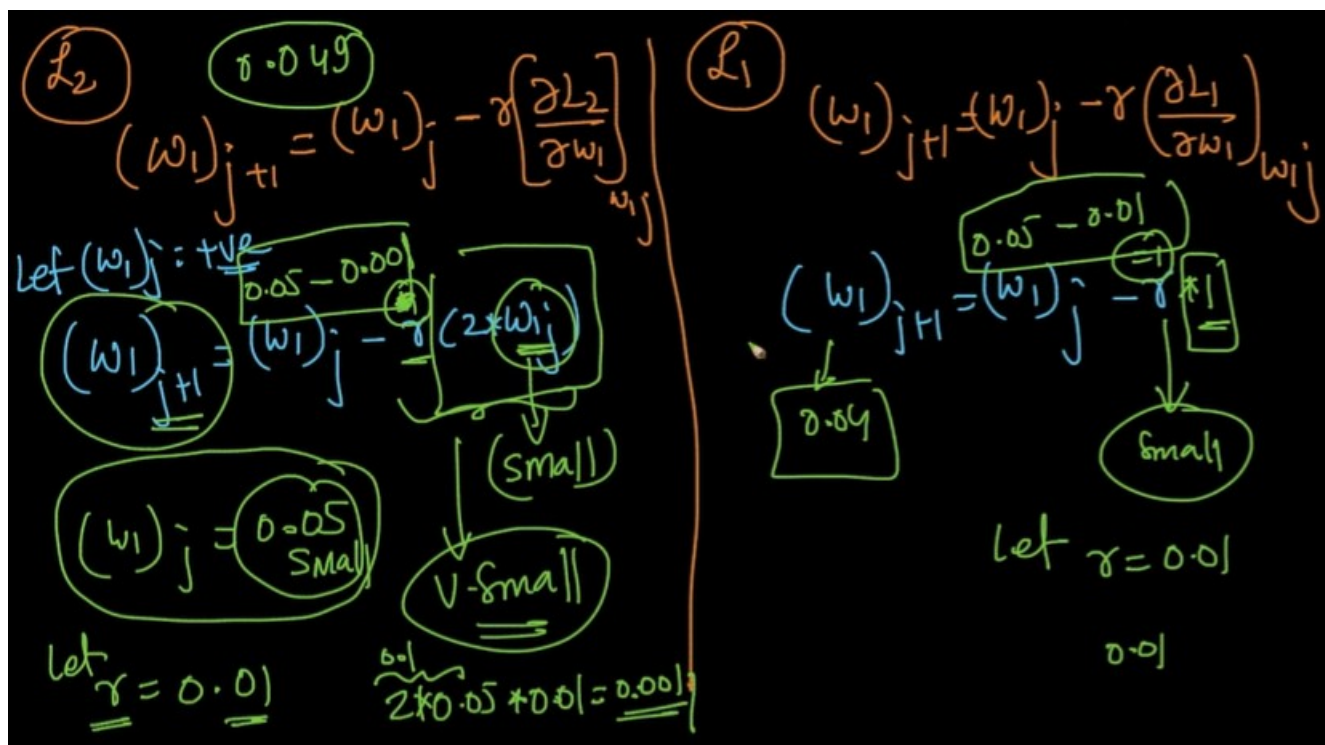 L₂
0.049
(w₁)j+1 = (w₁)j - r[∂L₂/∂w₁]w₁j
Let (w₁)j: +ve
0.05 - 0.001
(w₁)j+1 = (w₁)j - r(2*w₁j)
(small)
(w₁)j = 0.05
Small
V-small
Let
r = 0.01
0.1
2*0.05*0.01 = 0.001
L₁
(w₁)j+1 = (w₁)j - r(∂L₁/∂w₁)w₁j
0.05 - 0.01
(w₁)j+1 = (w₁)j - r *1
0.04
Small
Let r = 0.01
0.01